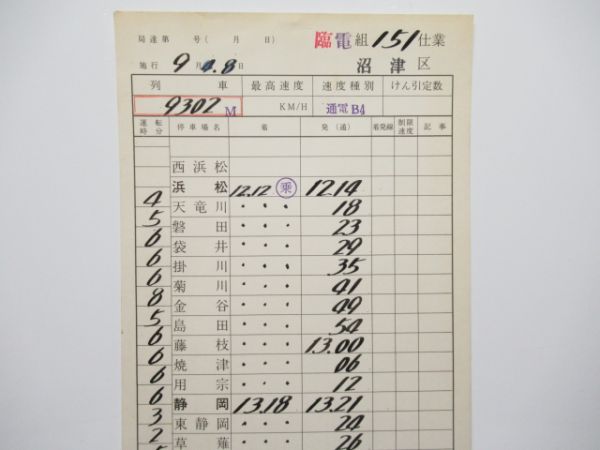 局達第 号( 月 日) 臨電組151仕業
施行 9月 8日 沼津区
列 車 最高速度 速度種別 けん引定数
9302M KM/H 通電B4
運転時分 停車場名 着 発(通) 着発線 制限速度 記事
西浜松
浜松 12.12 乗 12.14
4 天竜川 ・ ・ ・ 18
5 磐田 ・ ・ ・ 23
6 袋井 ・ ・ ・ 29
6 掛川 ・ ・ ・ 35
6 菊川 ・ ・ ・ 41
8 金谷 ・ ・ ・ 49
5 島田 ・ ・ ・ 54
6 藤枝 ・ ・ ・ 13.00
6 焼津 ・ ・ ・ 06
6 用宗 ・ ・ ・ 12
6 静岡 13.18 13.21
3 東静岡 ・ ・ ・ 24
2 草薙 ・ ・ ・ 26